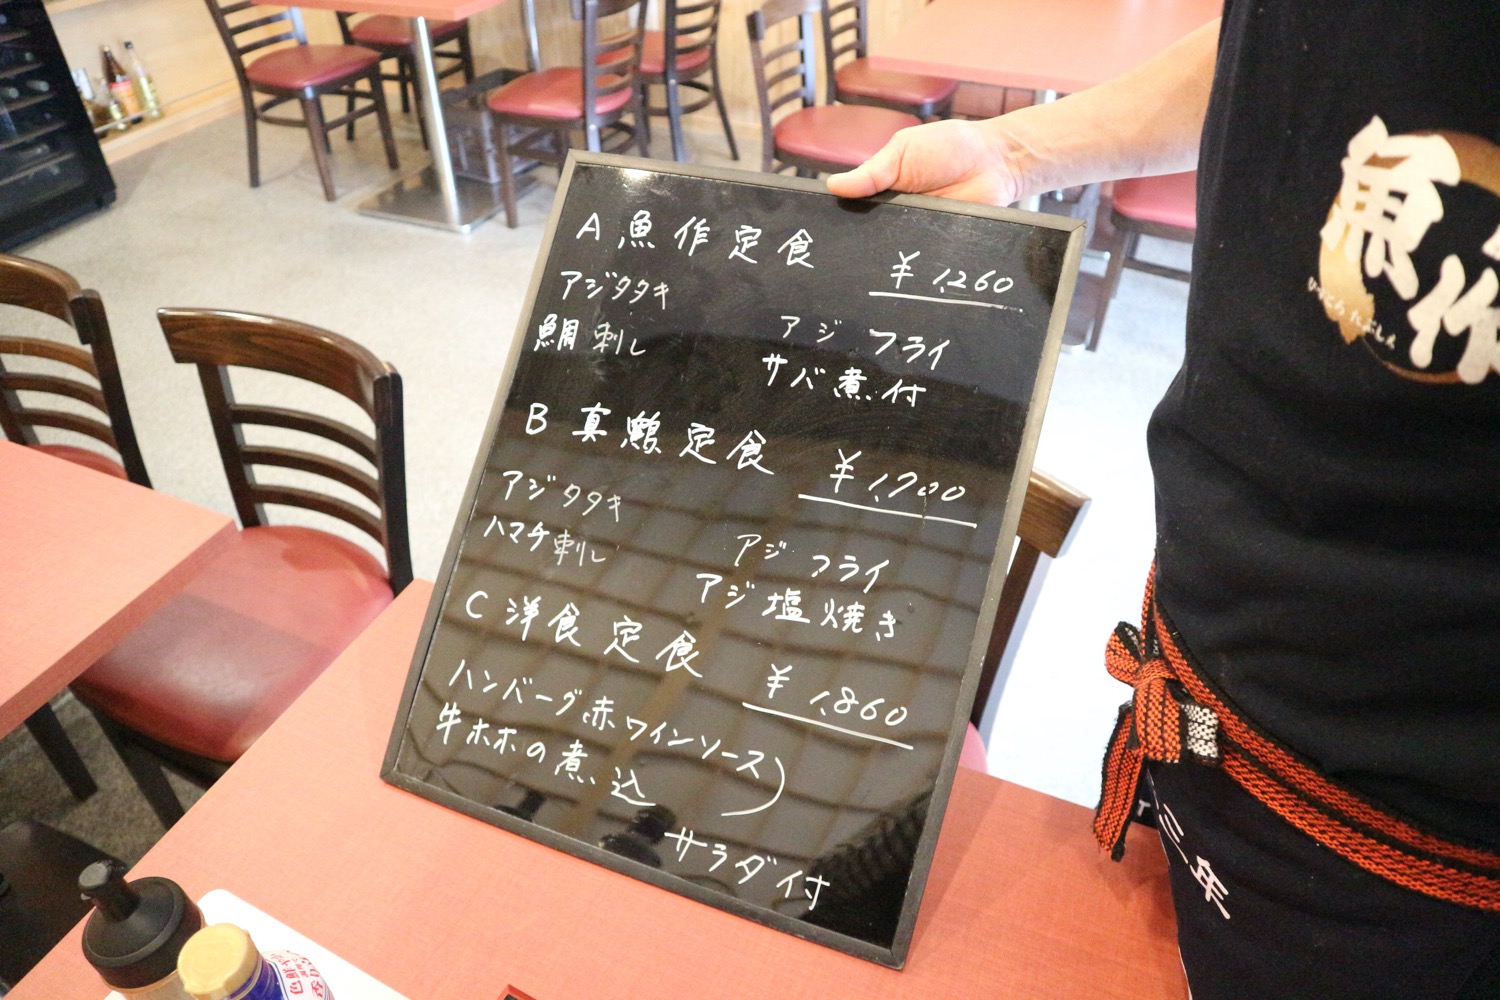 A 魚作定食 ¥1,260
アジタタキ
鯛刺し
アジフライ
サバ煮付
B 真鯵定食 ¥1,700
アジタタキ
ハマチ刺し
アジフライ
アジ塩焼き
C 洋食定食 ¥1,860
ハンバーグ赤ワインソース
牛ホホの煮込
サラダ付
魚作
三年